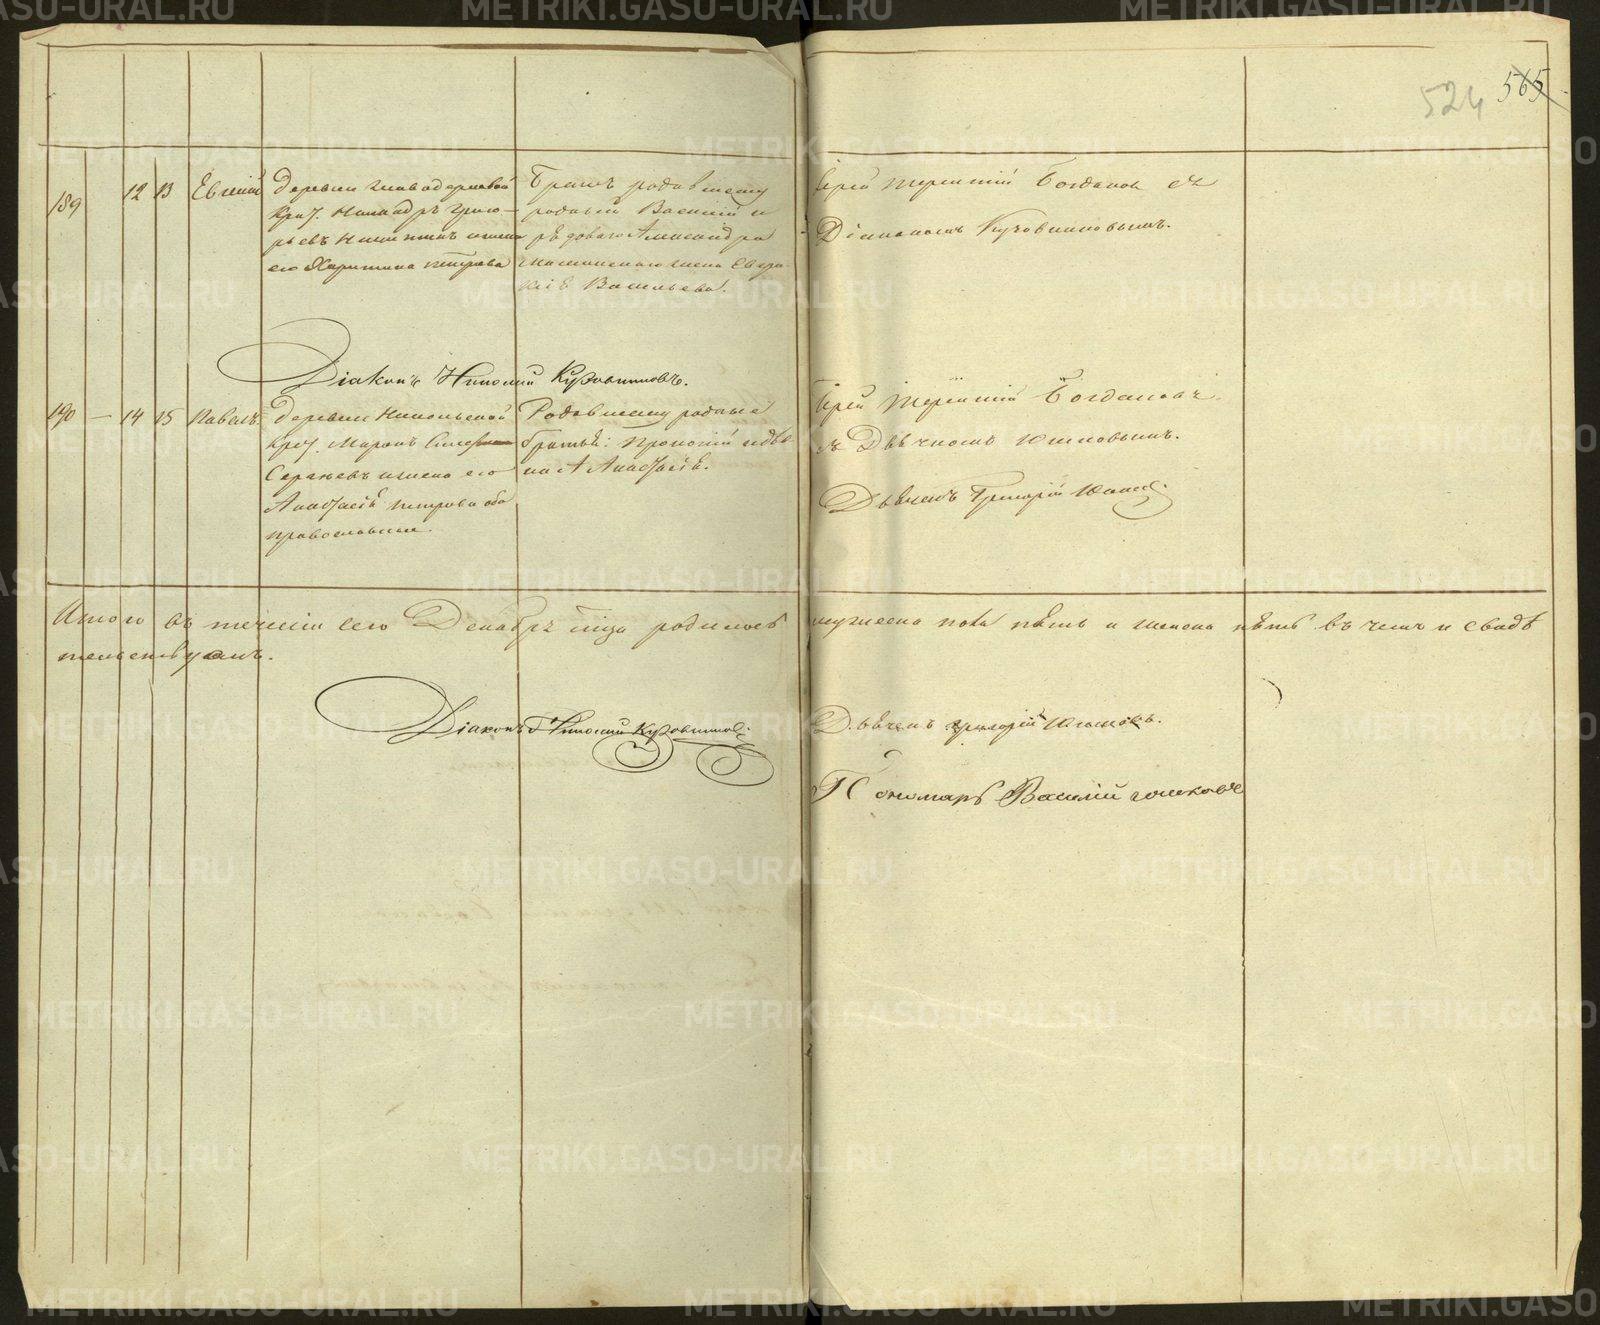 524 565
189 12 13 Евгений
Деревни
Никандръ Григо-
рьевъ Никитинъ и жена
его Харитина Петрова
Братъ родившему
родный Василий и
рядоваго Александра
жена Евдо-
кія Васильева.
Іерей Терентій Богданов съ
Діакономъ Кузовниковымъ.
Діаконъ Николай Кузовниковъ.
190 — 14 15 Павелъ
Деревни Никольской
Крес. Миронъ
Сергѣевъ и жена его
Анастасія Петрова оба
православные.
Родившему родные
братья: Прокопій и дѣв
ка Анастасія.
Іерей Терентій Богдановъ
съ Дьячкомъ Юшковымъ.
Дьячекъ Григорій Юшков.
Итого въ теченіи сего Декабря м҃ца родилось мужеска пола пять и женска пять въ чемъ и свидѣ
тельствуемъ.
Діаконъ Николай Кузовников.
Дьячекъ Григорій Юшковъ.
Пономарь Василій
METRIKI.GASO-URAL.RU